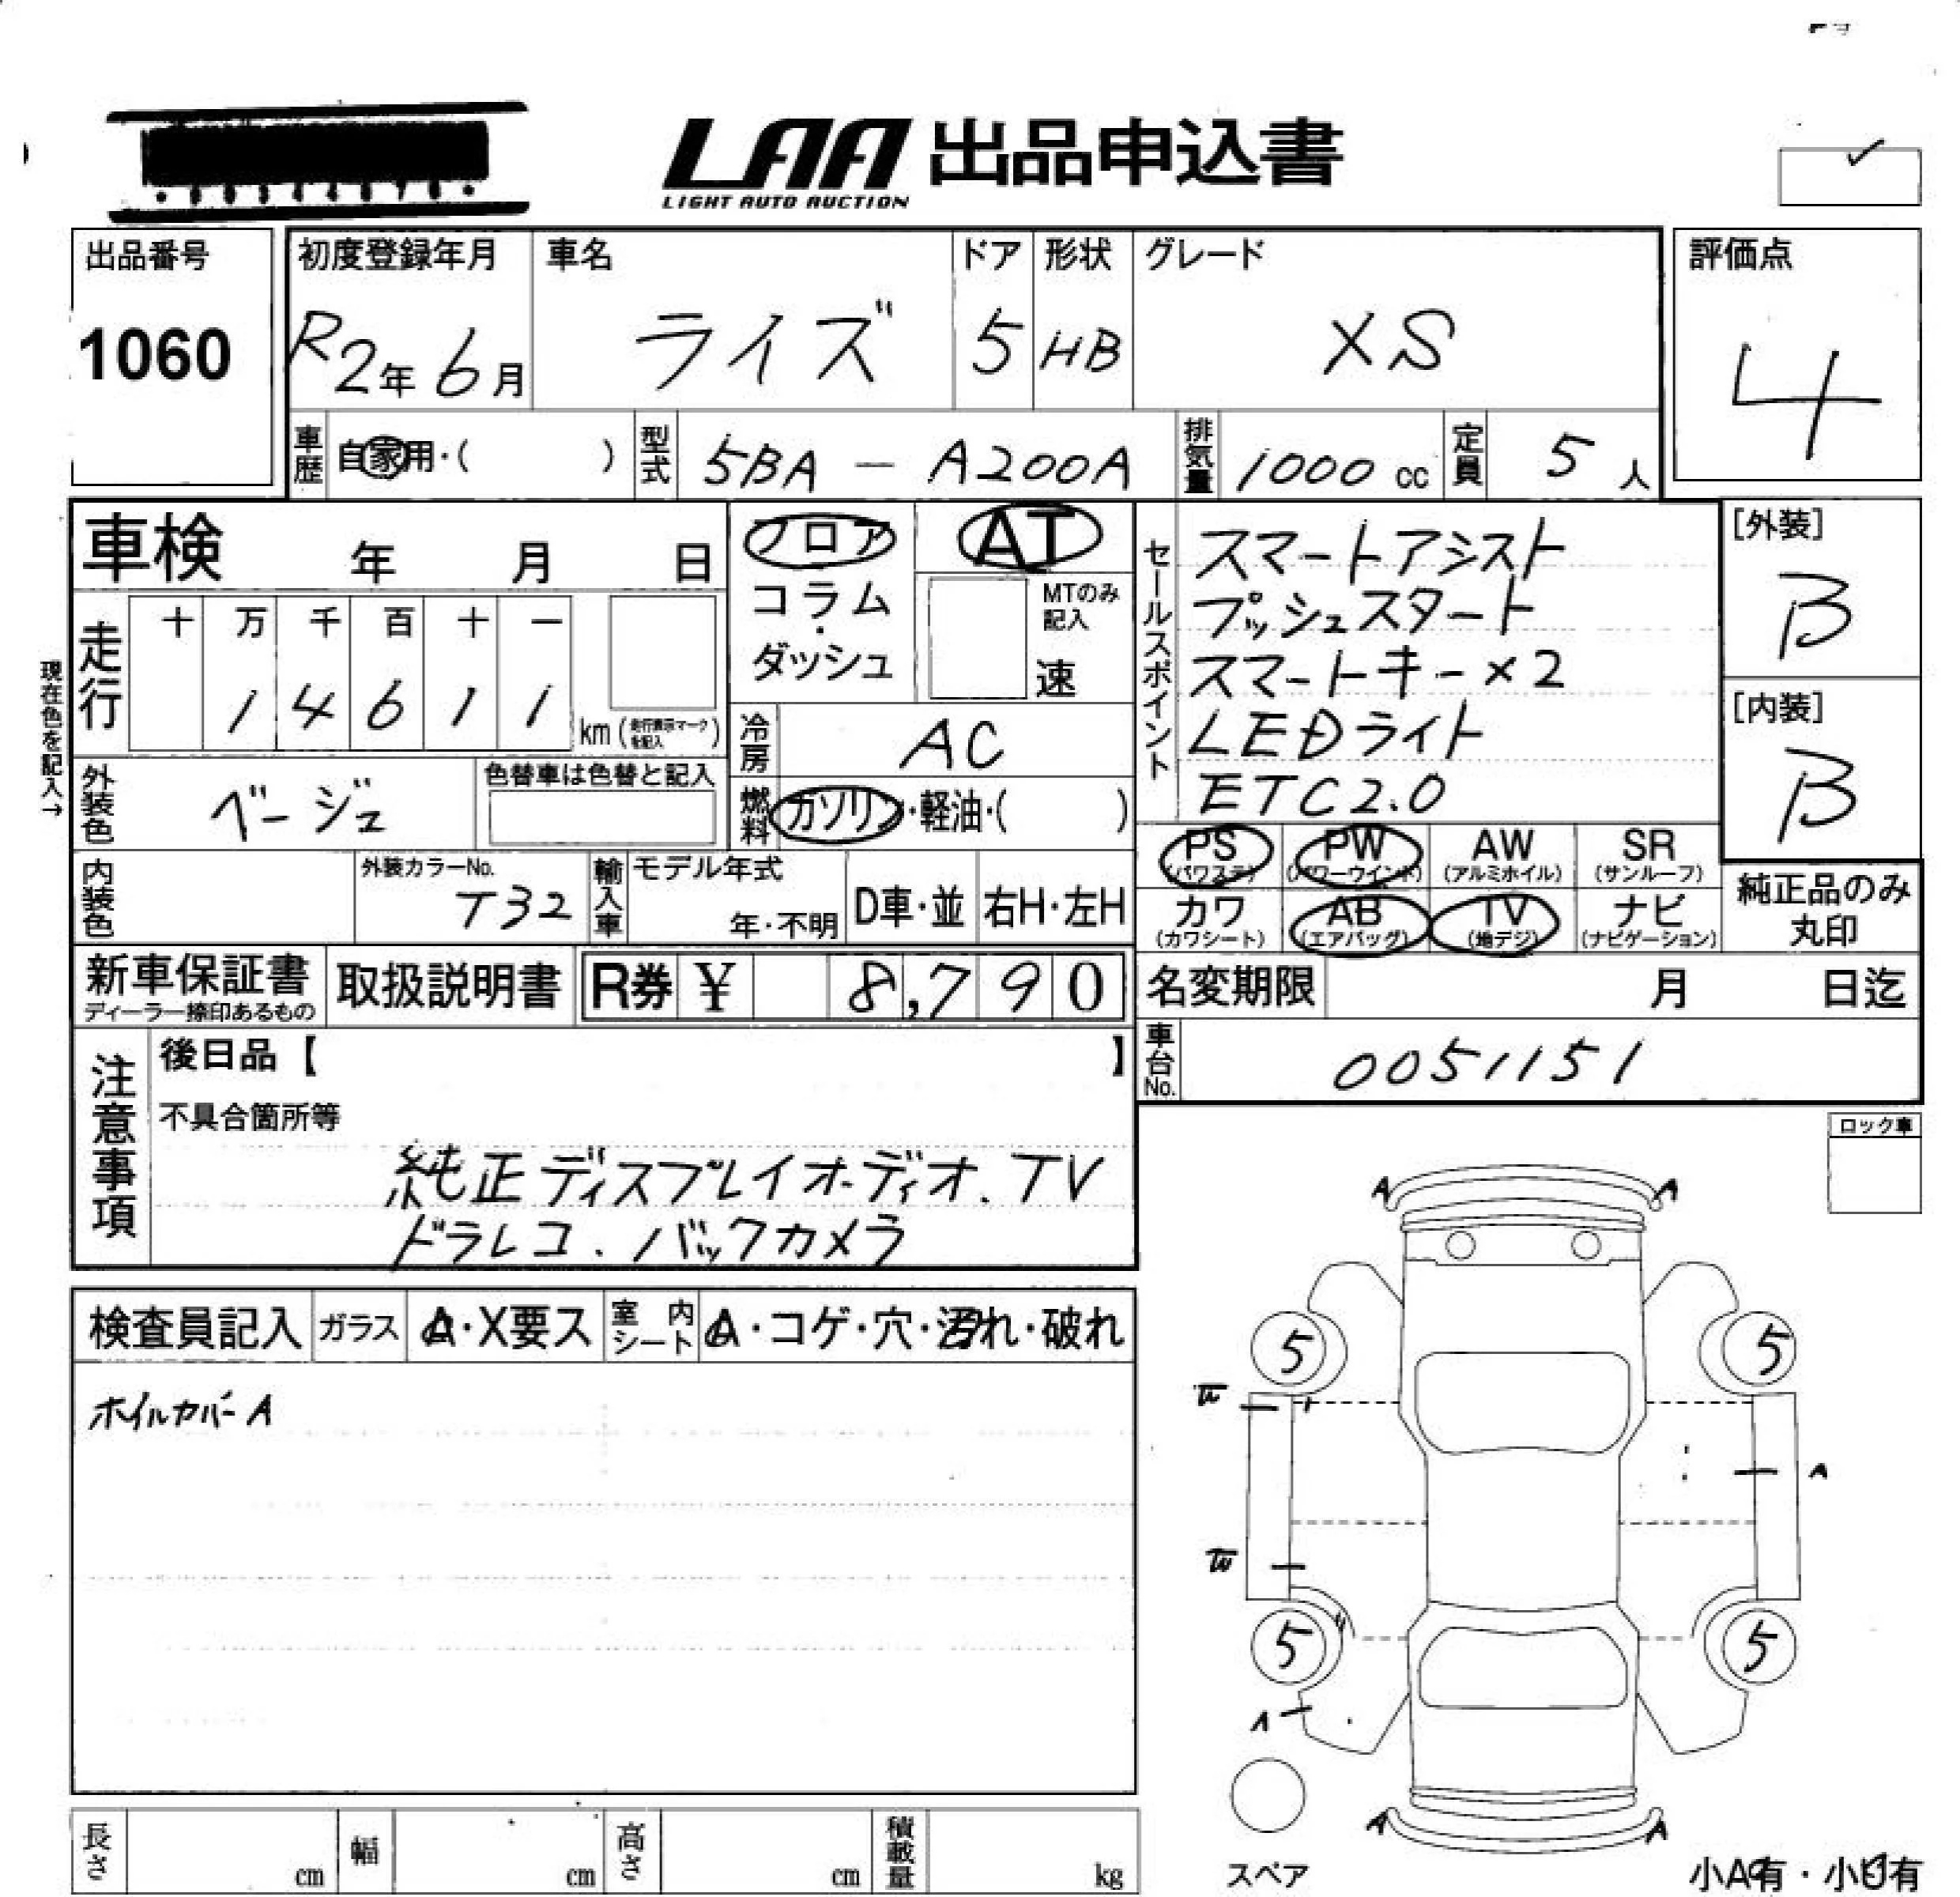 LAA 出品申込書
LIGHT AUTO AUCTION
出品番号
1060
初度登録年月
R2年6月
車名
ライズ
ドア
5
形状
HB
グレード
XS
評価点
4
車歴
自家用・( )
型式
5BA - A200A
排気量
1000 cc
定員
5人
車検 年 月 日
フロア
コラム・
ダッシュ
AT
MTのみ
記入
速
現在色を記入→
走行
十 万 千 百 十 一
1 4 6 1 1
km (走行表示マークを記入)
冷房
AC
外装色
ベージュ
色替車は色替と記入
燃料
ガソリン・軽油・( )
内装色
外装カラーNo.
T32
輸入車
モデル年式
年・不明
D車・並
右H・左H
新車保証書
ディーラー捺印あるもの
取扱説明書
R券 ¥ 8,790
セールスポイント
スマートアシスト
プッシュスタート
スマートキー×2
LEDライト
ETC2.0
[外装]
B
[内装]
B
PS
(パワステ)
PW
(パワーウインド)
AW
(アルミホイル)
SR
(サンルーフ)
カワ
(カワシート)
AB
(エアバッグ)
TV
(地デジ)
ナビ
(ナビゲーション)
純正品のみ
丸印
名変期限 月 日迄
車台No.
0051151
注意事項
後日品【 】
不具合箇所等
純正ディスプレイオーディオ、TV
ドラレコ、バックカメラ
ロック車
検査員記入
ガラス
A・X要ス
室内シート
A・コゲ・穴・汚れ・破れ
ホイルカバーA
A A
5 5
A
5 5
A
A A
スペア
小A有・小凹有
長さ cm
幅 cm
高さ cm
積載量 kg